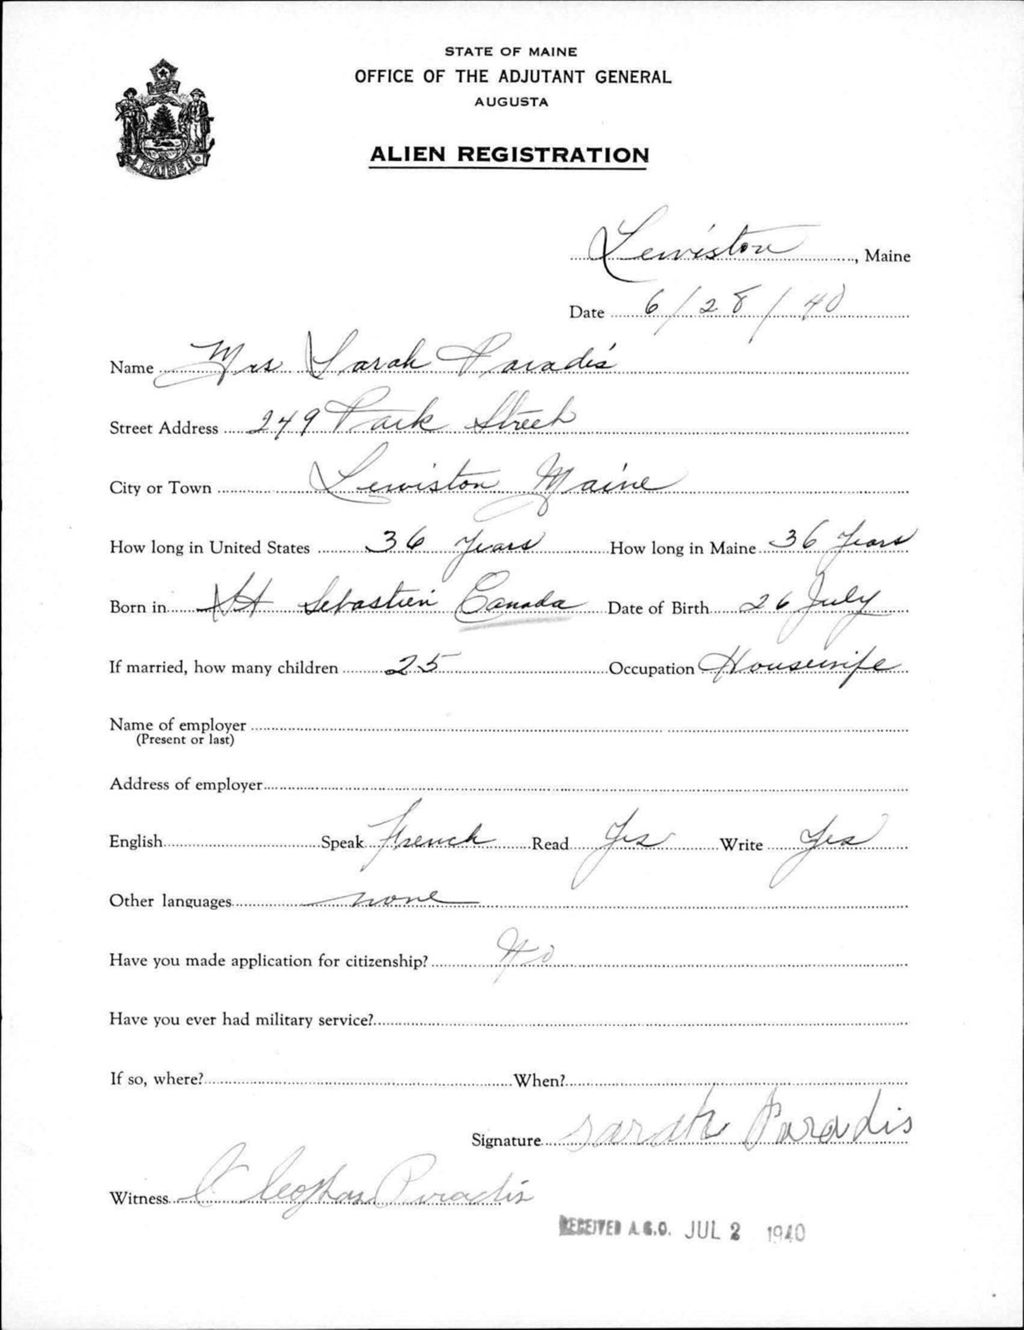 STATE OF MAINE
OFFICE OF THE ADJUTANT GENERAL
AUGUSTA
ALIEN REGISTRATION
MAINE
Lewiston, Maine
Date 6/28/40
Name Mrs Sarah Paradis
Street Address 249 Park Street
City or Town Lewiston Maine
How long in United States 36 years How long in Maine 36 Years
Born in St Sebastien Canada Date of Birth 26 July
If married, how many children 25 Occupation Housewife
Name of employer
(Present or last)
Address of employer
English Speak French Read Yes Write Yes
Other languages none
Have you made application for citizenship? No
Have you ever had military service?
If so, where? When?
Signature Sarah Paradis
Witness Cleophas Paradis
RECEIVED A.G.O. JUL 2 1940